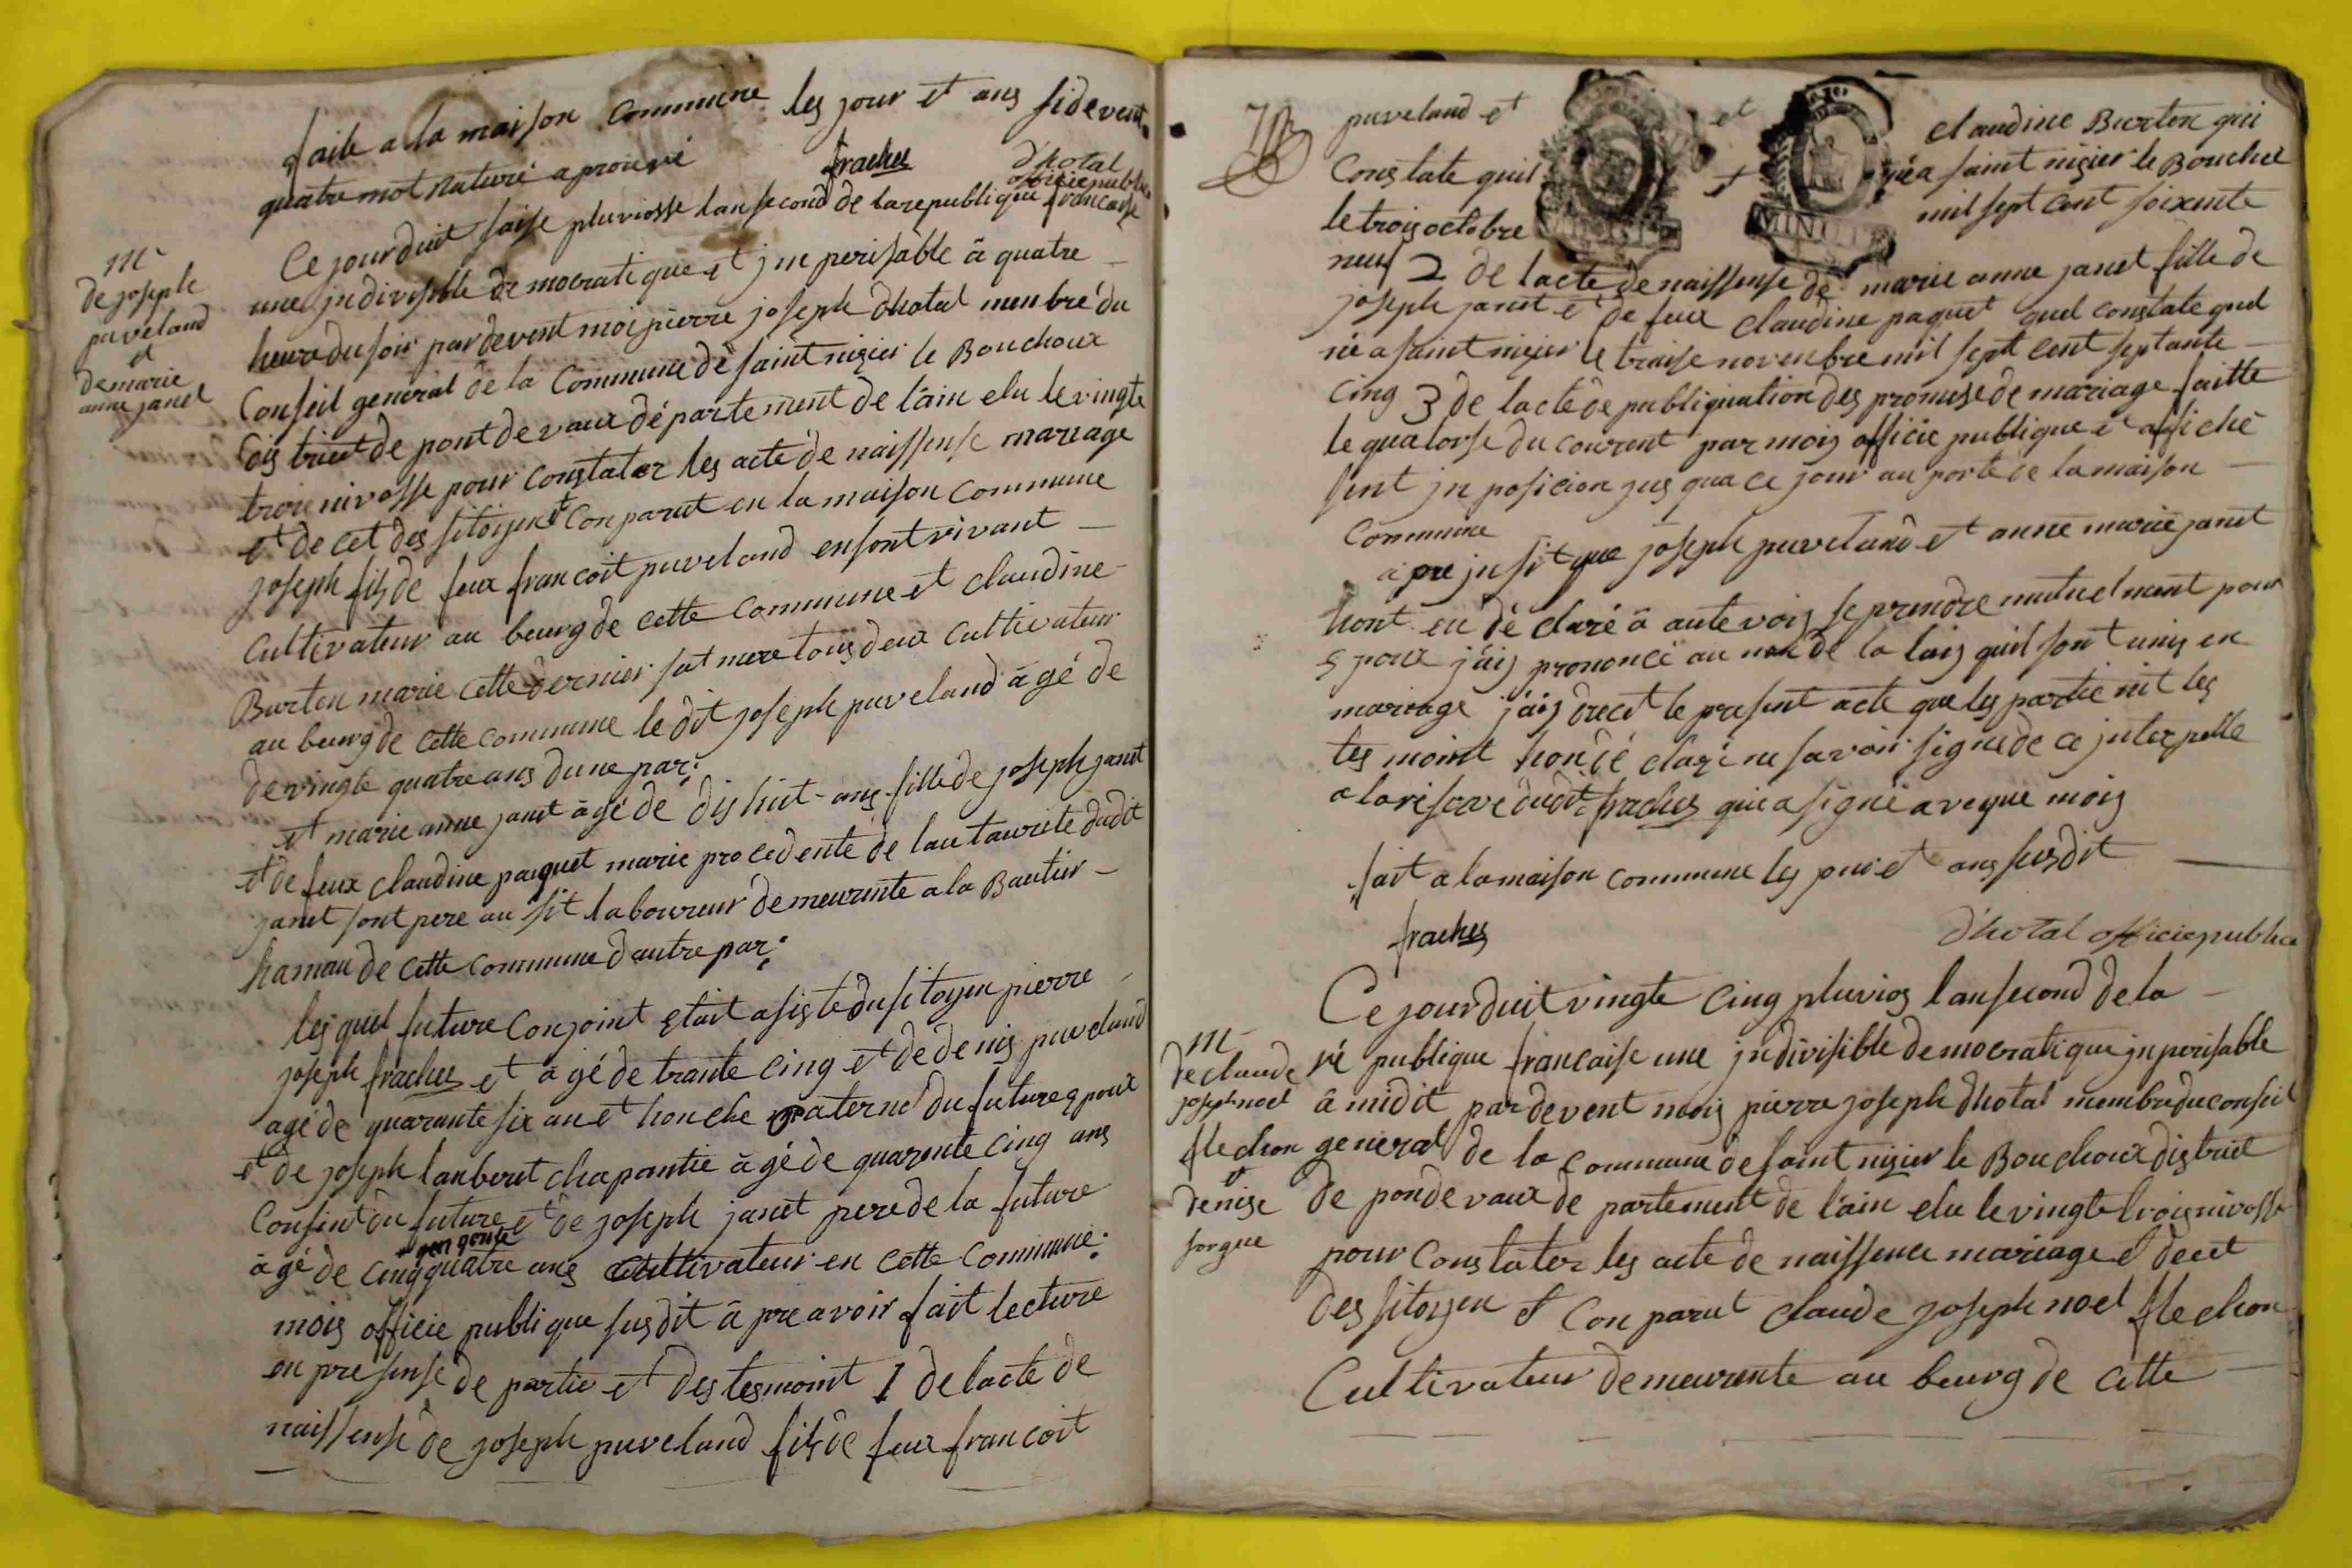 faite a la maison commune les jour et ans sidevent
quatre mot naturé aprouvé
frachet
d'hotal
officiepublice
m
de joseph
puveland
et
demarie
anne janet
Ce jourduit saise pluviosse lansecond de larepublique francaise
une jndivisible democratique et jnperisable â quatre
heure du soir pardevent moi pierre joseph dhotal menbre du
Conseil general de la Commune de saint nizier le Bouchoux
district de pont de vaux département de lâin elu le vingte
trois nivosse pour constater les acte de naissense mariage
et de cet des sitoyent Conparut en la maison commune
joseph fils de feux francoit puveland ensont vivant
Cultivateur au bourg de cette commune et claudine
Burton marie cette dernier sat mere tous deux cultivateur
au bourg de cette commune le dit joseph puveland âgé de
de vingte quatre ans dune par:
et marie anne janet âgé de dishuit ans fille de joseph janet
et de feux claudine paquet marie procedente de lautaurite dudit
janet sont pere au sit laboureur demeurente a la Bautier
hamau de cette commune dautre par:
les quel future conjoint etait asiste du sitoyen pierre
joseph frachet et âgé de trante cinq et de denis puveland
agé de quarante six an et honcle paternel du future epoux
et de joseph lanberet chapantie âgé de quarente cinq ans
Consint du future et de joseph janet pere de la future
âgé de cinq quatre ans cultivateur en cette commune:
mois officie publique susdit â pre avoir fait lecture
en presense de partie et des tesmoint 1 de lacte de
naissense de joseph puveland fils de feux francoit
puveland et et claudine Burton qui
Constate quil et née a saint nizier le Bouchet
le trois octobre mil sept cent soixente
MINUTE
neuf 2 de lacte de naissense de marie anne janet fille de
joseph janet et de feux claudine paquet quel constate quel
née a saint nizier le traise novenbre mil sept cent septante
cinq 3 de lacte de publiquation des promese de mariage faitte
le quatorse du courent par mois officie publique et afiché
sent jn posicion jus qua ce jour au porte de la maison
Commune
a pre jnsit que joseph puveland et anne marie janet
hont eu dé claré â aute vois se prendre mutuelment pour
epoux jâis prononcé au non de la lois quil sont unis en
mariage jâis drecet le present acte que les partie nit les
tes moint hondé claré ne savoir signé de ce jnterpelle
a la riserve dudit frachet qui a signé aveque mois
fait a la maison commune les jour et ans susdit
frachet
d'hotal officiepublice
m
de claude
joseph noel
flechon
et
denise
forgue
Ce jourduit vingte cinq pluvios lansecond de la
ré publique francaise une jndivisible democratique jnperisable
â midit pardevent mois pierre joseph dhotal membre du conseil
general de la commune de saint nizier le Bouchoux district
de ponde vaux de partement de lâin elu le vingte trois nivosse
pour Constater les acte de naissence mariage et decet
des sitoyen et Conparut claude joseph noel flechon
Cultivateur demeurente au bourg de cette